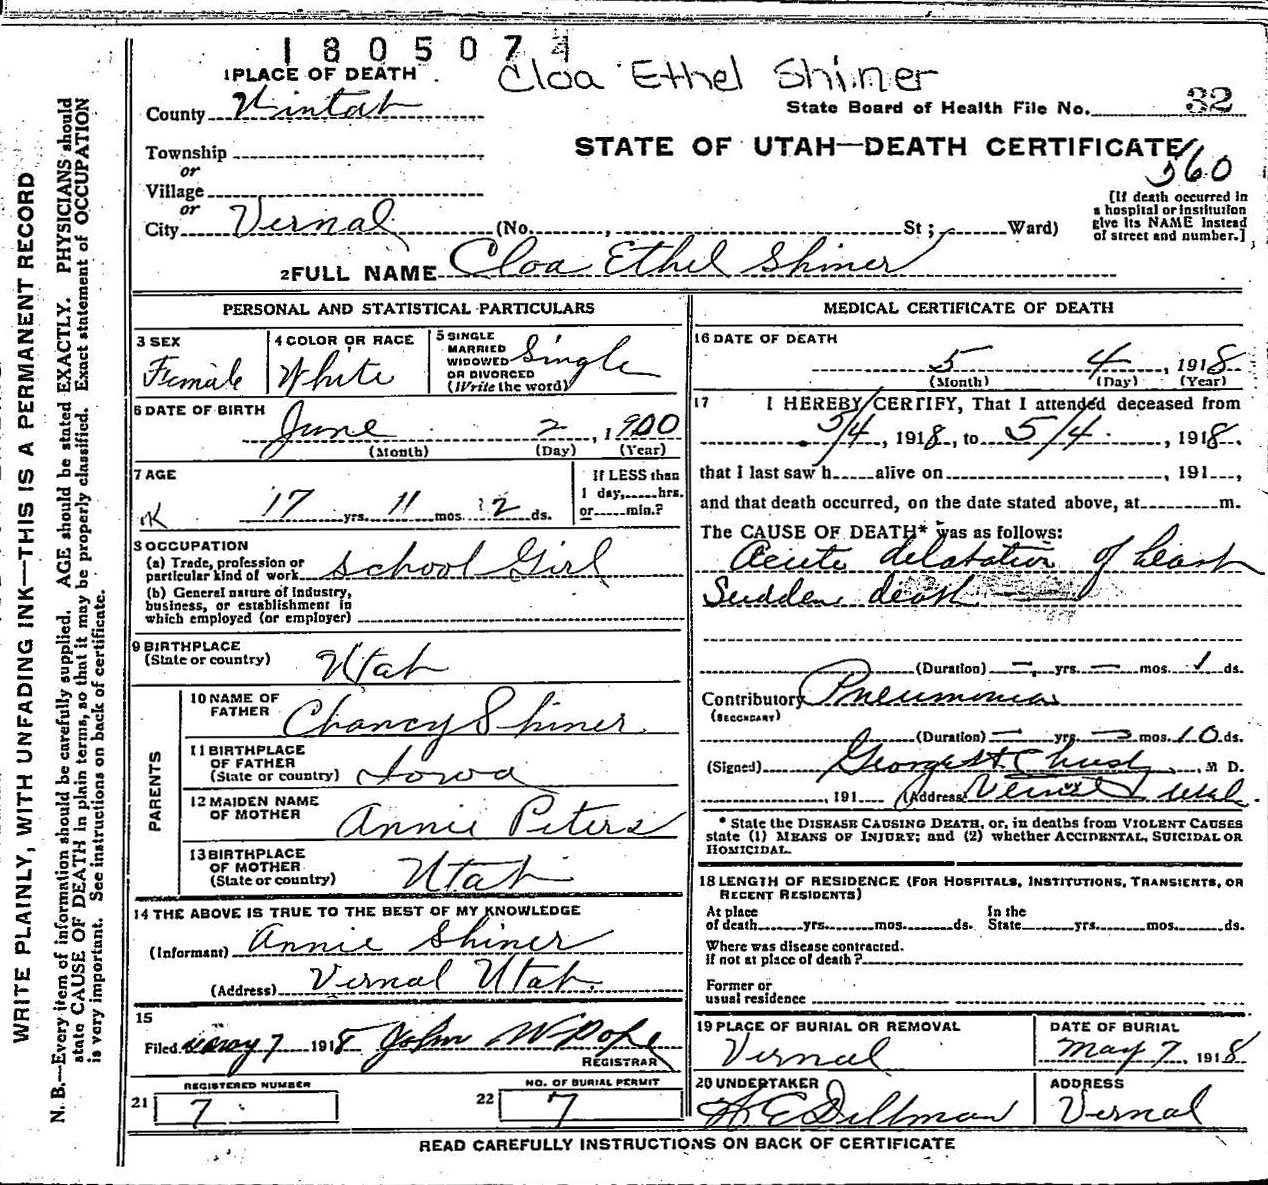 1805074
Cloa Ethel Shiner
1 PLACE OF DEATH
County Uintah
State Board of Health File No. 32
Township
or
Village
or
City Vernal (No. , St; Ward)
STATE OF UTAH—DEATH CERTIFICATE
560
[If death occurred in
a hospital or institution
give its NAME instead
of street and number.]
2 FULL NAME Cloa Ethel Shiner
PERSONAL AND STATISTICAL PARTICULARS
3 SEX
Female
4 COLOR OR RACE
White
5 SINGLE
MARRIED
WIDOWED
OR DIVORCED
(Write the word)
Single
6 DATE OF BIRTH
June 2, 1900
(Month) (Day) (Year)
7 AGE
17 yrs. 11 mos. 2 ds.
If LESS than
1 day, hrs.
or min.?
8 OCCUPATION
(a) Trade, profession or
particular kind of work School Girl
(b) General nature of industry,
business, or establishment in
which employed (or employer)
9 BIRTHPLACE
(State or country) Utah
PARENTS
10 NAME OF
FATHER Chancy Shiner
11 BIRTHPLACE
OF FATHER
(State or country) Iowa
12 MAIDEN NAME
OF MOTHER Annie Peters
13 BIRTHPLACE
OF MOTHER
(State or country) Utah
14 THE ABOVE IS TRUE TO THE BEST OF MY KNOWLEDGE
(Informant) Annie Shiner
(Address) Vernal Utah
15
Filed May 7 1918 John W Pope
REGISTRAR
REGISTERED NUMBER
21 7
NO. OF BURIAL PERMIT
22 7
MEDICAL CERTIFICATE OF DEATH
16 DATE OF DEATH
5 4, 1918
(Month) (Day) (Year)
17 I HEREBY CERTIFY, That I attended deceased from
5/4, 1918, to 5/4, 1918.
that I last saw h alive on , 191 ,
and that death occurred, on the date stated above, at m.
The CAUSE OF DEATH* was as follows:
Acute dilatation of heart
Sudden death
(Duration) — yrs. — mos. 1 ds.
Contributory Pneumonia
(SECONDARY)
(Duration) — yrs. — mos. 10 ds.
(Signed) George H. , M D.
, 191 (Address) Vernal Utah.
* State the DISEASE CAUSING DEATH, or, in deaths from VIOLENT CAUSES
state (1) MEANS OF INJURY; and (2) whether ACCIDENTAL, SUICIDAL OR
HOMICIDAL.
18 LENGTH OF RESIDENCE (FOR HOSPITALS, INSTITUTIONS, TRANSIENTS, OR
RECENT RESIDENTS)
At place
of death yrs. mos. ds.
In the
State yrs. mos. ds.
Where was disease contracted.
if not at place of death?
Former or
usual residence
19 PLACE OF BURIAL OR REMOVAL
Vernal
DATE OF BURIAL
May 7, 1918
20 UNDERTAKER
H E Dillman
ADDRESS
Vernal
READ CAREFULLY INSTRUCTIONS ON BACK OF CERTIFICATE
WRITE PLAINLY, WITH UNFADING INK—THIS IS A PERMANENT RECORD
N. B.—Every item of information should be carefully supplied. AGE should be stated EXACTLY. PHYSICIANS should
state CAUSE OF DEATH in plain terms, so that it may be properly classified. Exact statement of OCCUPATION
is very important. See instructions on back of certificate.